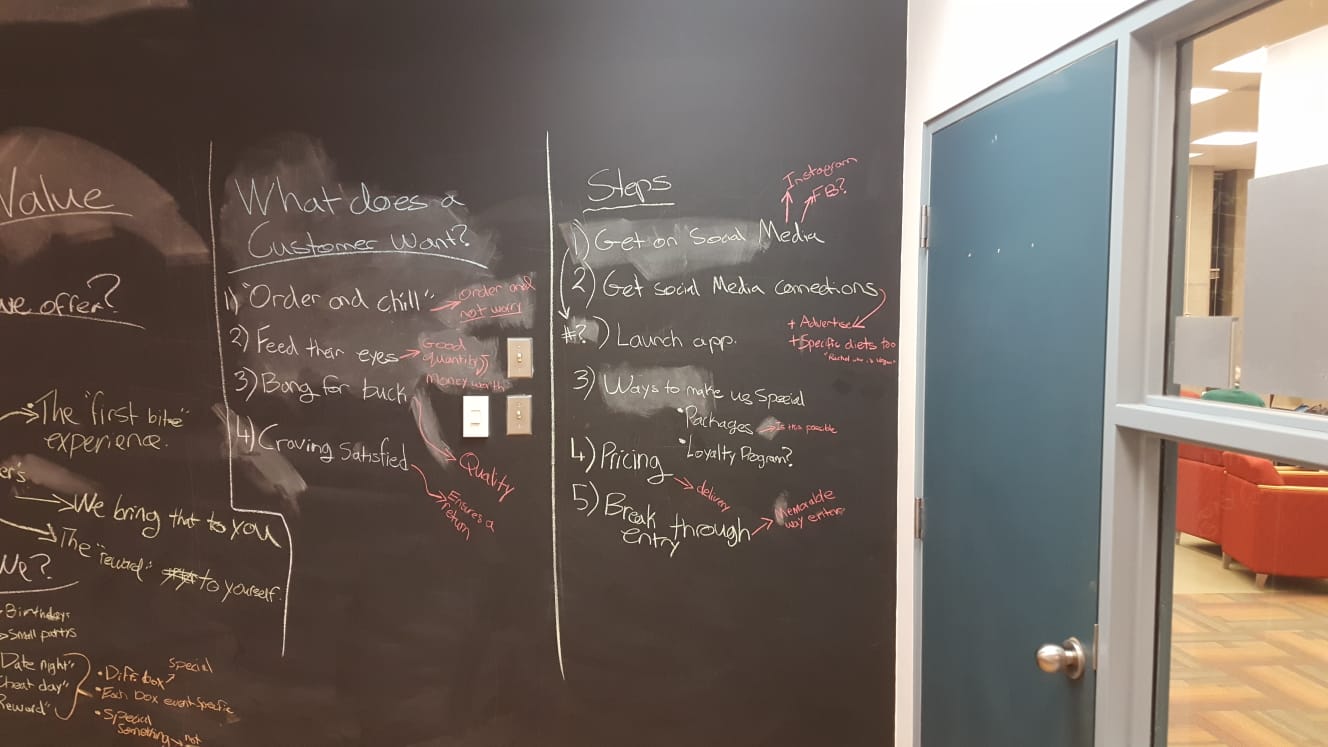 Value
we offer?
"The "first bite"
experience.
er's
We bring that to you
The "reward" to yourself.
We?
Birthdays
Small partys
Date night"
Cheat day"
Reward"
special
• Diff. box
• Each box event specific
• Special
something → not
What does a
Customer Want?
1) "Order and chill" → Order and
not worry
2) Feed their eyes → Good
quantity
Money worth
3) Bang for buck
Quality
4) Craving Satisfied
Ensures a
return
Steps
Instagram
FB?
1) Get on Social Media
2) Get social Media connections
+ Advertise
+ Specific diets too
#?) Launch app.
3) Ways to make us Special
• Packages → Is this possible
• Loyalty Program?
4) Pricing → delivery
5) Break through → Memorable
entry way